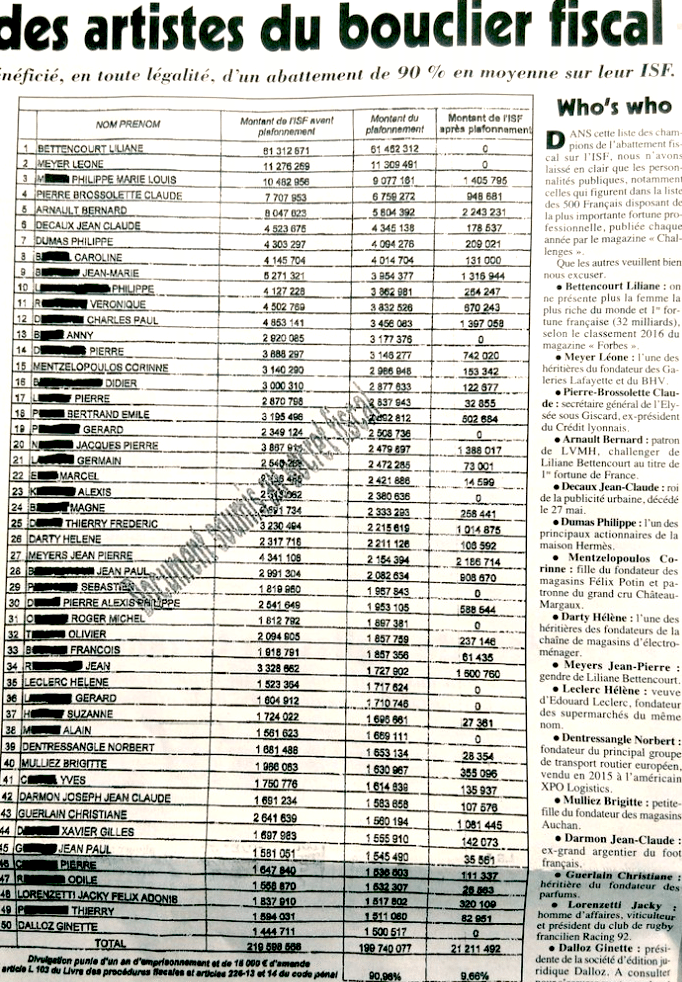 des artistes du bouclier fiscal
énéficié, en toute légalité, d'un abattement de 90 % en moyenne sur leur ISF.
NOM PRENOM Montant de l'ISF avant plafonnement Montant du plafonnement Montant de l'ISF après plafonnement
1 BETTENCOURT LILIANE 61 312 571 61 452 312 0
2 MEYER LEONE 11 276 269 11 309 491 0
3 M PHILIPPE MARIE LOUIS 10 482 956 9 077 161 1 405 795
4 PIERRE BROSSOLETTE CLAUDE 7 707 953 6 759 272 948 681
5 ARNAULT BERNARD 8 047 623 5 804 392 2 243 231
6 DECAUX JEAN CLAUDE 4 523 675 4 345 138 178 537
7 DUMAS PHILIPPE 4 303 297 4 094 276 209 021
8 B CAROLINE 4 145 704 4 014 704 131 000
9 B JEAN-MARIE 5 271 321 3 954 377 1 316 944
10 L PHILIPPE 4 127 228 3 862 981 264 247
11 R VERONIQUE 4 502 769 3 832 526 670 243
12 D CHARLES PAUL 4 853 141 3 456 083 1 397 058
13 B ANNY 2 920 085 3 177 376 0
14 D PIERRE 3 888 297 3 146 277 742 020
15 MENTZELOPOULOS CORINNE 3 140 290 2 986 948 153 342
16 B DIDIER 3 000 310 2 877 633 122 677
17 L PIERRE 2 870 798 2 837 943 32 855
18 P BERTRAND EMILE 3 195 496 2 692 812 502 684
19 P GERARD 2 349 124 2 508 736 0
20 N JACQUES PIERRE 2 479 697 1 388 017
21 L GERMAIN 2 472 285 73 001
22 E MARCEL 2 421 886 14 599
23 K ALEXIS 2 380 636 0
24 B MAGNE 2 333 293 258 441
25 D THIERRY FREDERIC 3 230 494 2 215 619 1 014 875
26 DARTY HELENE 2 317 718 2 211 126 106 592
27 MEYERS JEAN PIERRE 4 341 108 2 154 394 2 186 714
28 B JEAN PAUL 2 991 304 2 082 634 908 670
29 P SEBASTIEN 1 819 960 1 957 843 0
30 D PIERRE ALEXIS PHILIPPE 2 541 649 1 953 105 588 544
31 O ROGER MICHEL 1 812 792 1 897 381 0
32 T OLIVIER 2 094 905 1 857 759 237 146
33 B FRANCOIS 1 918 791 1 857 356 61 435
34 R JEAN 3 328 662 1 727 902 1 600 760
35 LECLERC HELENE 1 523 364 1 717 624 0
36 L GERARD 1 604 912 1 710 746 0
37 H SUZANNE 1 724 022 1 696 661 27 361
38 M ALAIN 1 561 623 1 669 111 0
39 DENTRESSANGLE NORBERT 1 681 488 1 653 134 28 354
40 MULLIEZ BRIGITTE 1 986 063 1 630 967 355 096
41 C YVES 1 750 776 1 614 839 135 937
42 DARMON JOSEPH JEAN CLAUDE 1 691 234 1 583 658 107 576
43 GUERLAIN CHRISTIANE 2 641 639 1 560 194 1 081 445
44 D XAVIER GILLES 1 697 983 1 555 910 142 073
45 G JEAN PAUL 1 581 051 1 545 490 35 561
46 C PIERRE 1 647 940 1 536 603 111 337
47 R ODILE 1 558 870 1 532 307 26 563
48 LORENZETTI JACKY FELIX ADONIS 1 837 910 1 517 802 320 109
49 P THIERRY 1 594 031 1 511 080 82 951
50 DALLOZ GINETTE 1 444 711 1 500 517 0
TOTAL 219 598 566 199 740 077 21 211 492
Divulgation punie d'un an d'emprisonnement et de 15 000 € d'amende
article L 103 du Livre des procédures fiscales et articles 226-13 et 14 du code pénal
90,96% 9,66%
Document soumis au secret fiscal
Who's who
DANS cette liste des cham-
pions de l'abattement fis-
cal sur l'ISF, nous n'avons
laissé en clair que les person-
nalités publiques, notamment
celles qui figurent dans la liste
des 500 Français disposant de
la plus importante fortune pro-
fessionnelle, publiée chaque
année par le magazine « Chal-
lenges ».
Que les autres veuillent bien
nous excuser.
● Bettencourt Liliane : on
ne présente plus la femme la
plus riche du monde et 1re for-
tune française (32 milliards),
selon le classement 2016 du
magazine « Forbes ».
● Meyer Léone : l'une des
héritières du fondateur des Ga-
leries Lafayette et du BHV.
● Pierre-Brossolette Clau-
de : secrétaire général de l'Ely-
sée sous Giscard, ex-président
du Crédit lyonnais.
● Arnault Bernard : patron
de LVMH, challenger de
Liliane Bettencourt au titre de
1re fortune de France.
● Decaux Jean-Claude : roi
de la publicité urbaine, décédé
le 27 mai.
● Dumas Philippe : l'un des
principaux actionnaires de la
maison Hermès.
● Mentzelopoulos Co-
rinne : fille du fondateur des
magasins Félix Potin et pa-
tronne du grand cru Château-
Margaux.
● Darty Hélène : l'une des
héritières des fondateurs de la
chaîne de magasins d'électro-
ménager.
● Meyers Jean-Pierre :
gendre de Liliane Bettencourt.
● Leclerc Hélène : veuve
d'Edouard Leclerc, fondateur
des supermarchés du même
nom.
● Dentressangle Norbert :
fondateur du principal groupe
de transport routier européen,
vendu en 2015 à l'américain
XPO Logistics.
● Mulliez Brigitte : petite-
fille du fondateur des magasins
Auchan.
● Darmon Jean-Claude :
ex-grand argentier du foot
français.
● Guerlain Christiane :
héritière du fondateur des
parfums.
● Lorenzetti Jacky :
homme d'affaires, viticulteur
et président du club de rugby
francilien Racing 92.
● Dalloz Ginette : prési-
dente de la société d'édition ju-
ridique Dalloz. A consulter